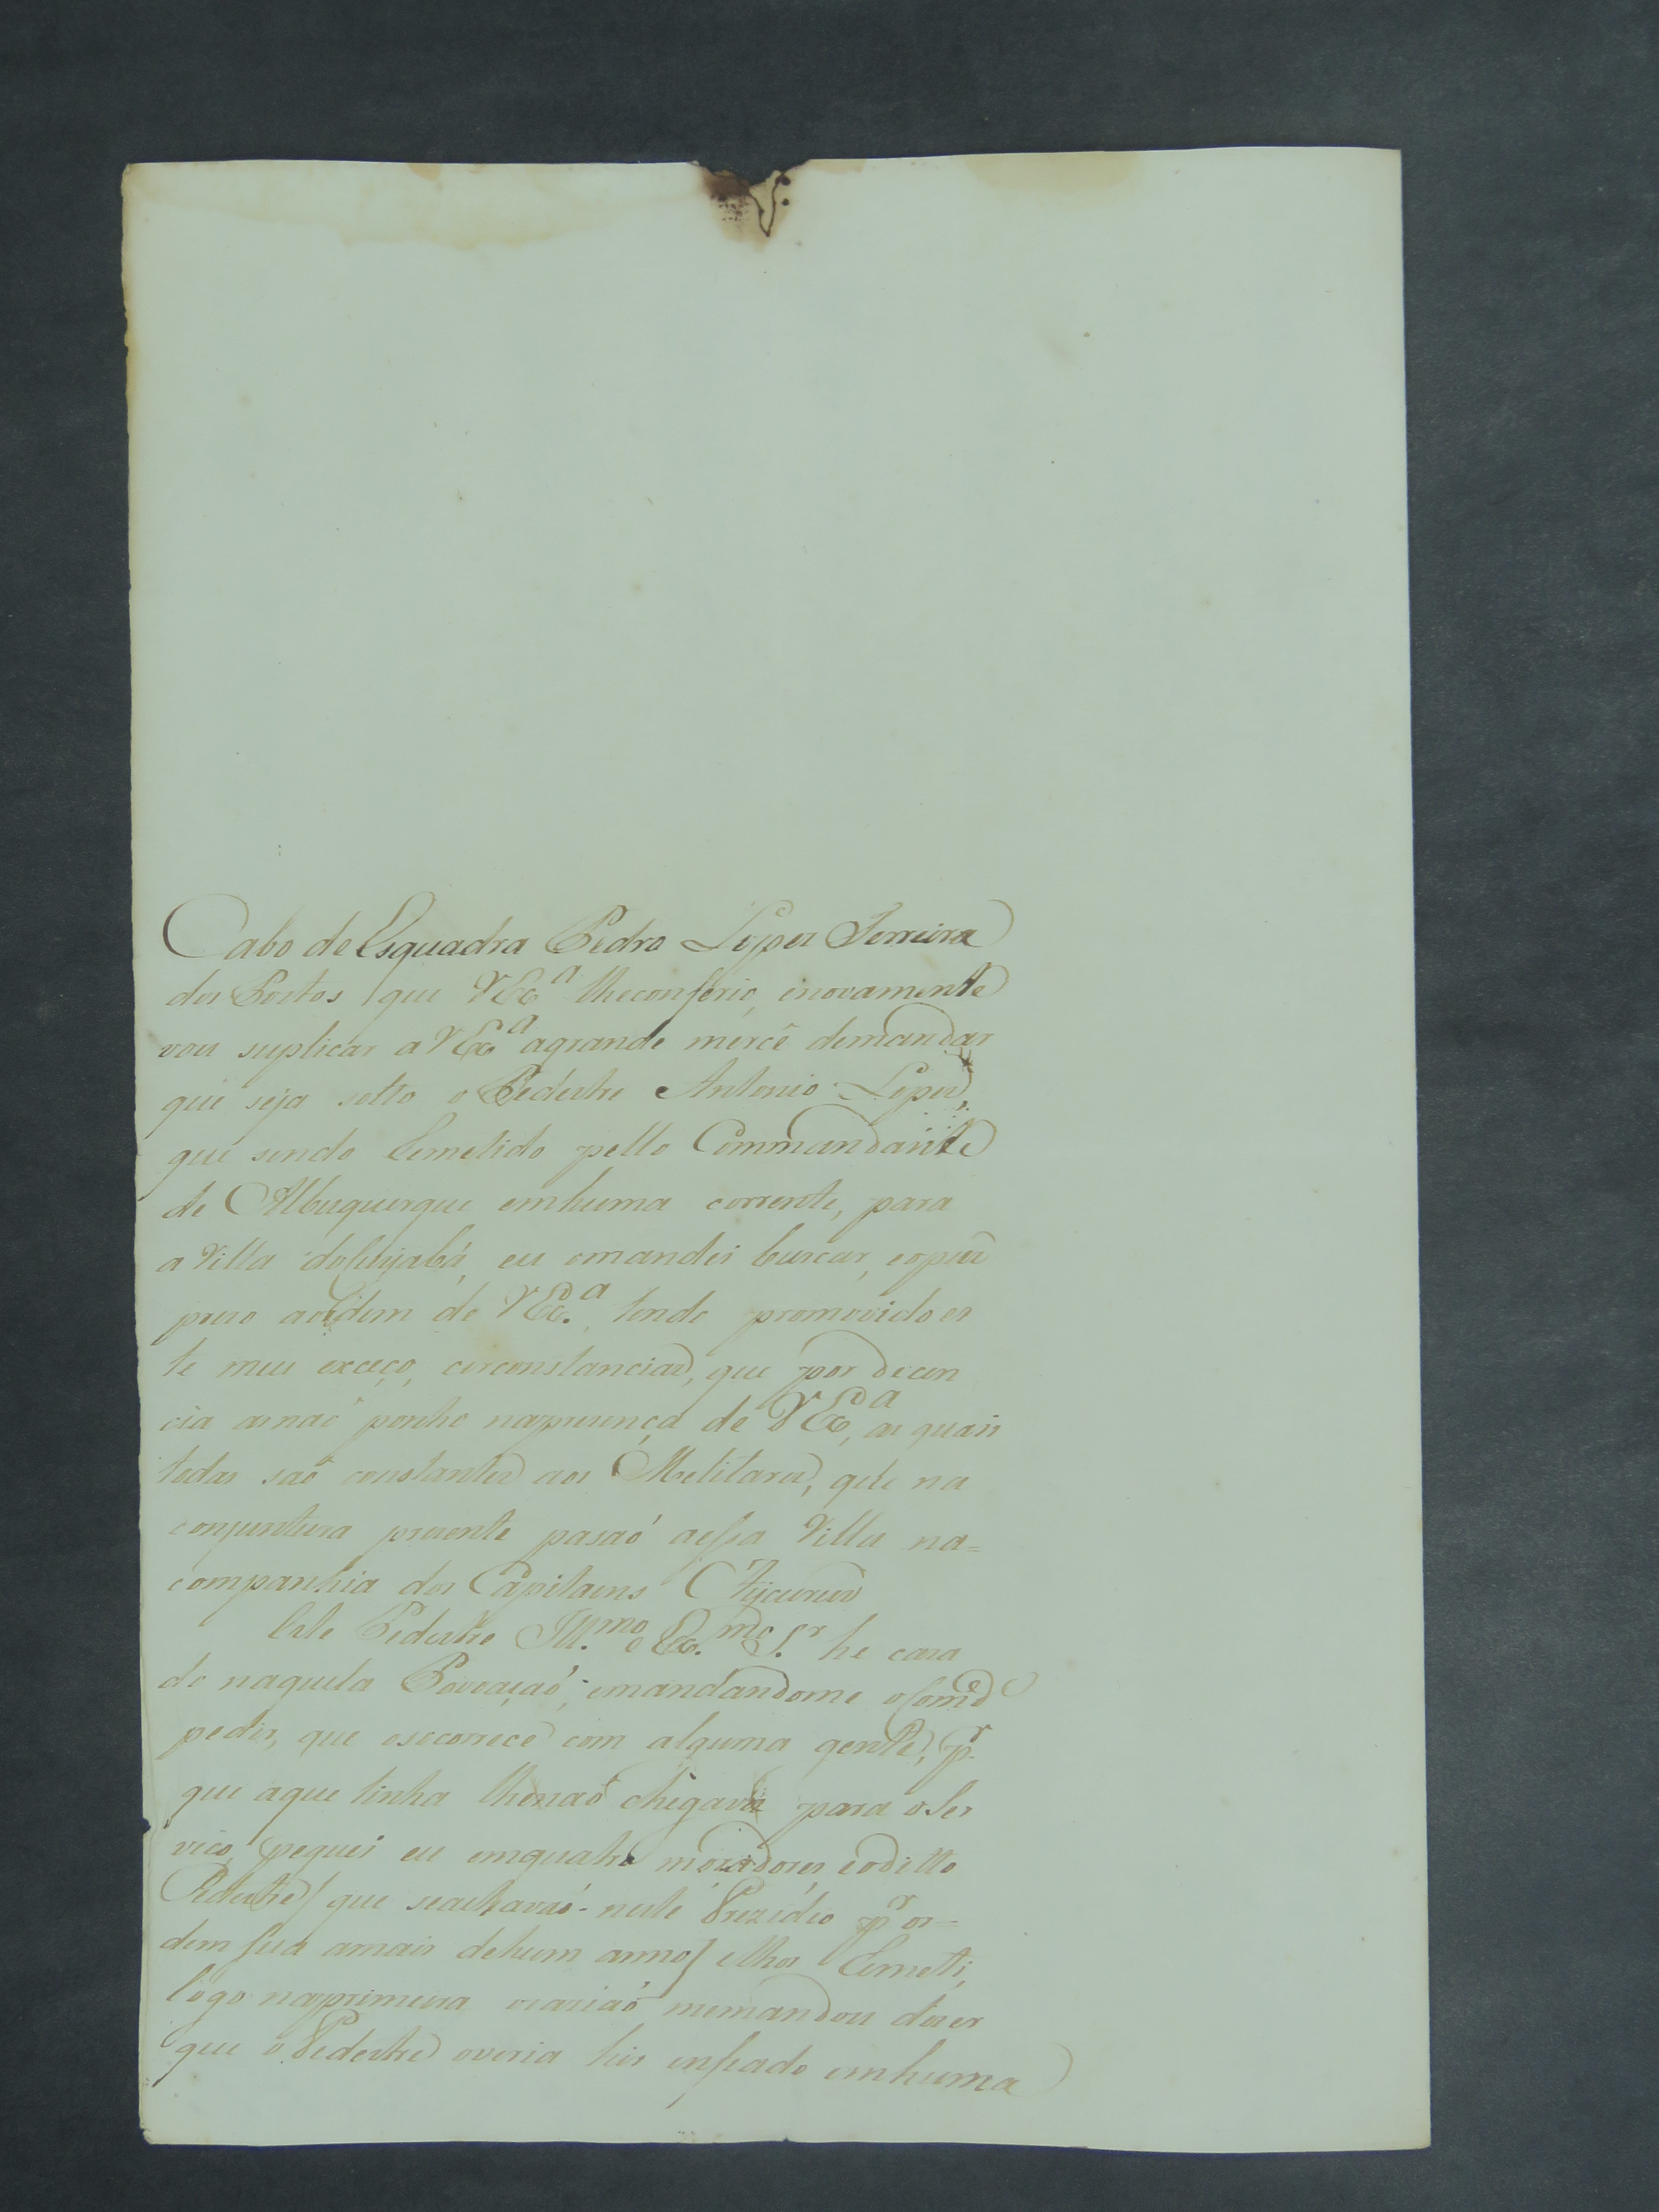 Cabo de Esquadra Pedro Lopes Ferreira
dos Portos que VEx.ª lheconferio, enovamente
vou suplicar a VEx.ª agrande mercê demandar
que seja solto o Pedestre Antonio Lopes,
que sendo Remetido pello Commandante
de Albuquerque emhuma corrente, para
a Villa doCuyabá, eu omandei buscar, eopus
prezo aordem de VEx.ª, tendo promovido es
te meu exceço, circonstancias, que por decen
cia asnaõ ponho naprezença de VEx.ª, as quais
todas saõ constantes aos Melitares, que na
conjuntura prezente pasaó aessa Villa na=
companhia dos Capitaens
Este Pedestre Ill.mo e Ex.mo S.r he caza
do naquela Povoaçaó, emandandome oComd.e
pedir, que osocorrece com alguma gente, p.r
que aque tinha lhenaõ chegava para oSer
viço, peguei eu emquatro moradores, eoditto
Pedestre / que seachavaó neste Prezidio p.r or=
dem sua amais dehum anno / elhos Remeti,
lógo naprimeira ocaziaó memandou dizer
que o Pedestre overia hir enfiado emhuma